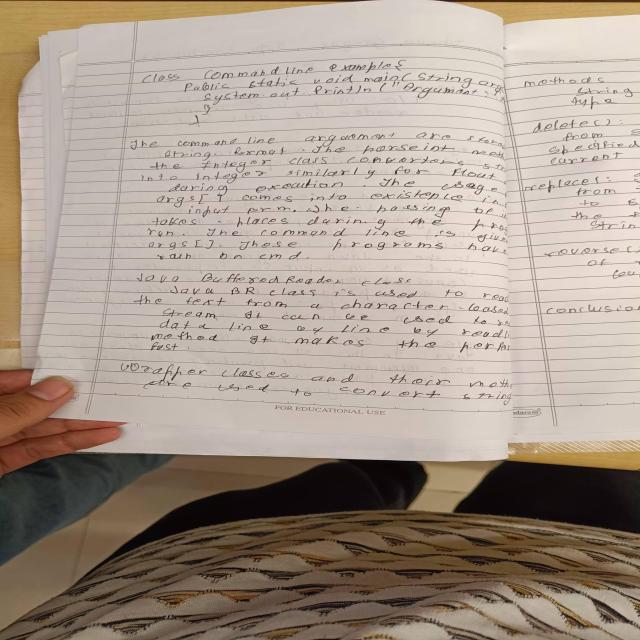 Class Commandline example{
Public static void main(String arg
System.out.Println("Argument:
}
}
The command line arguement are store
String format. The parseint meth
the Integer class converters str
into Integer similarly for float
during execution. The usage
args[] comes into existence in
input prm. The passing of
takes places during the pro
run. The command line is give
args[]. These programs have
ran on cmd.
Java BufferedReader class
Java BR class is used to read
the text from a character-based
stream It can be used to re
data line by line by readl
method It makes the perfo
fast.
Wrapper classes and their meth
are used to convert string
FOR EDUCATIONAL USE
methods
String
type
delete():
from
specified
current
replaces:
from
to
the
Strin
reverse(
of
conclusion